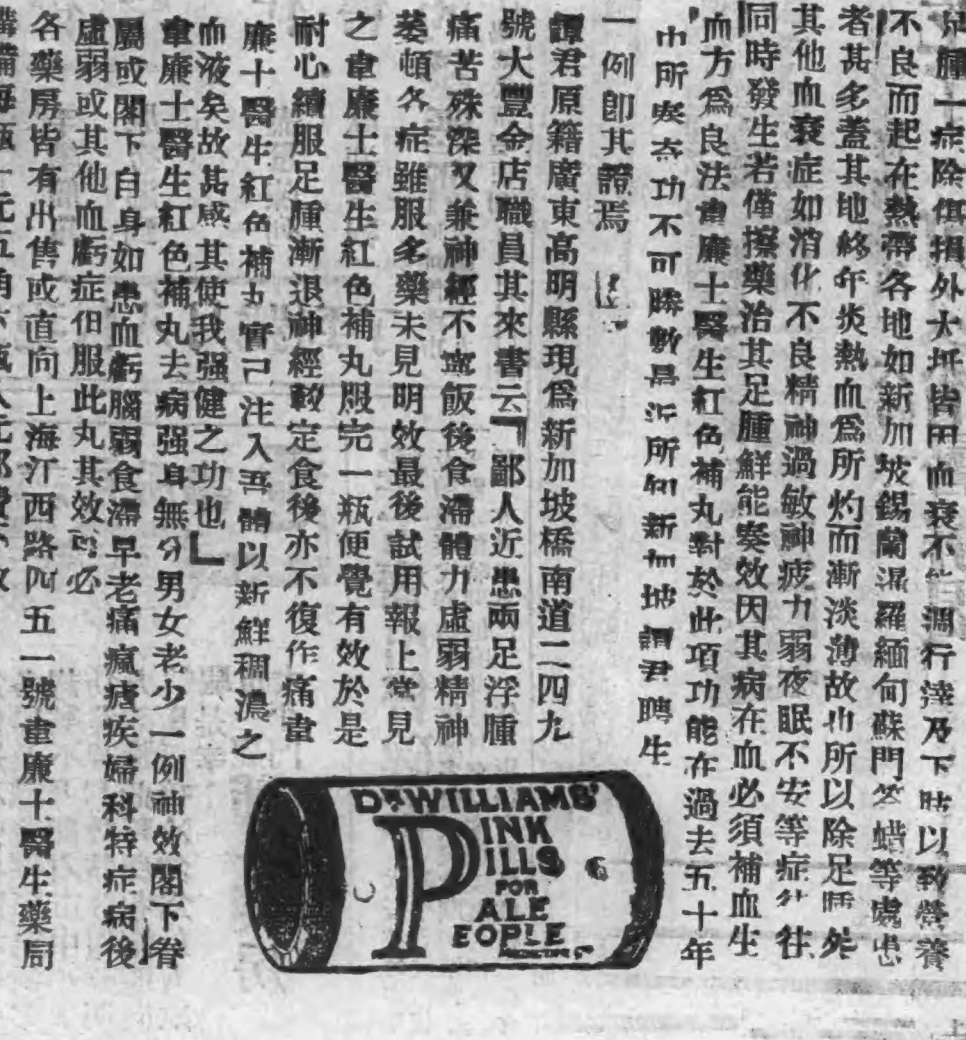 足腫一症除傷損外大抵皆因血衰不能調行達乃下肢以致營養
不良而起在熱帶各地如新加坡錫蘭暹羅緬甸蘇門答蜡等處患
者甚多蓋其地終年炎熱血爲所灼而漸淡薄故也所以除足腫外
其他血衰症如消化不良精神過敏神疲力弱夜眠不安等症往往
同時發生若僅擦藥治其足腫鮮能奏效因其病在血必須補血生
血方爲良法韋廉士醫生紅色補丸對於此項功能在過去五十年
中所奏奇功不可勝數最近所知新加坡譚君聘生
一例卽其證焉
譚君原籍廣東高明縣現爲新加坡橋南道二四九
號大豐金店職員其來書云「鄙人近患兩足浮腫
痛苦殊深又兼神經不寧飯後食滯體力虛弱精神
萎頓各症雖服多藥未見明效最後試用報上常見
之韋廉士醫生紅色補丸服完一瓶便覺有效於是
耐心續服足腫漸退神經較定食後亦不復作痛韋
廉士醫生紅色補丸實已注入吾體以新鮮稠濃之
血液矣故甚感其使我强健之功也」
韋廉士醫生紅色補丸去病强身無分男女老少一例神效閣下眷
屬或閣下自身如患血虧腦弱食滯早老痛瘋瘧疾婦科特症病後
虛弱或其他血虧症但服此丸其效可必
各藥房皆有出售或直向上海江西路四五一號韋廉士醫生藥局
購備每瓶一元五角六瓶八元郵費
DR WILLIAMS'
PINK
PILLS
FOR
PALE
PEOPLE